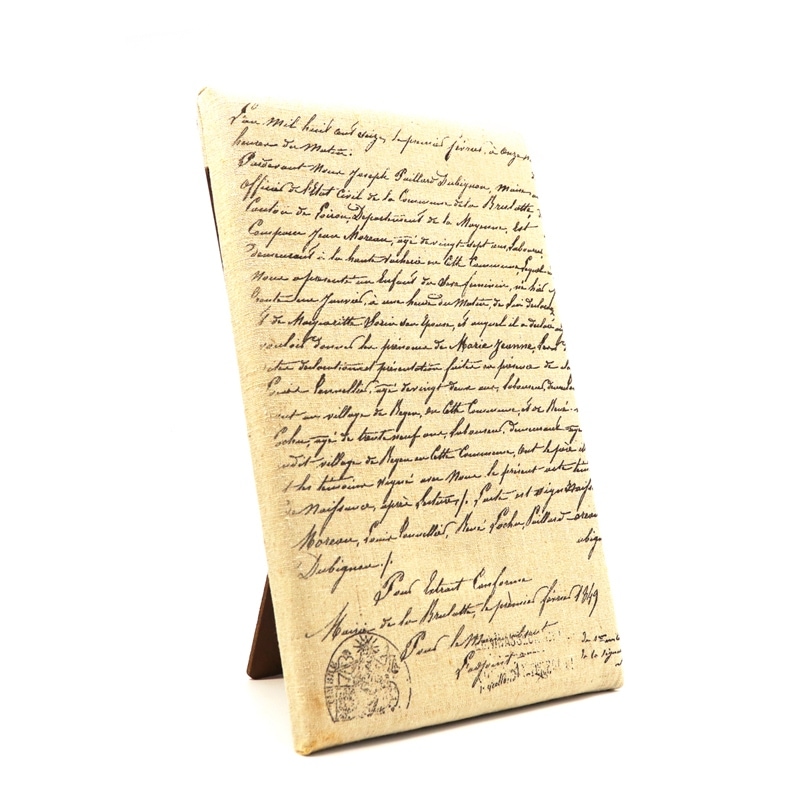 L'an mil huit cent seize, le premier février, à onze
heures du Matin.
Pardevant Nous Joseph Paillard Dubignon, maire
officier de l'Etat Civil de la Commune de la Brulatte,
Canton de Loiron, Département de la Mayenne, Est
Comparu Jean Moreau, agé de vingt-sept ans, laboureur
demeurant à la haute vacherie en Cette Commune, Lequel
Nous a présenté un Enfant du Sexe feminin, né hier
trente une Janvier, à une heure du Matin, de lui declarant
et de Margueritte Sorin son Epouse, et auquel il a declaré
vouloir donner les prénoms de Marie Jeanne, les
dites declaration et présentation faites en présence de
Louis Pennellier, agé de vingt deux ans, laboureur, demeu
au village de Beyen, en Cette Commune, et de René
Lochu, agé de trente neuf ans, laboureur, demeurant
audit village de Beyen en Cette Commune, ont le père et
les témoins signé avec Nous le présent acte
de Naissance, après lecture. L'acte est signé
Moreau, Louis Pennellier, René Lochu, Paillard
Dubignon.
Pour Extrait Conforme
Mairie de la Brulatte, le premier février 1849
Pour le Maire absent
L'adjoint
TIMBRE